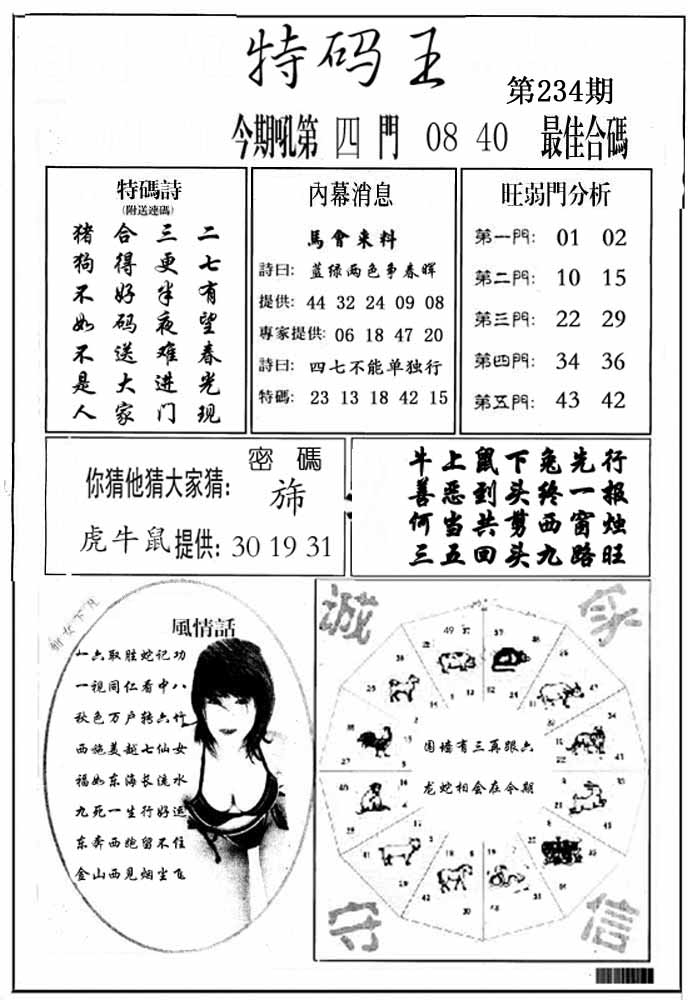 特码王
第234期
今期吼第 四 門 08 40 最佳合碼
特碼詩
(附送連碼)
猪 合 三 二
狗 得 更 七
不 好 半 有
如 码 夜 望
不 送 难 春
是 大 进 光
人 家 门 现
內幕消息
馬會来料
詩曰: 蓝绿两色争春晖
提供: 44 32 24 09 08
專家提供: 06 18 47 20
詩曰: 四七不能单独行
特碼: 23 13 18 42 15
旺弱門分析
第一門: 01 02
第二門: 10 15
第三門: 22 29
第四門: 34 36
第五門: 43 42
密碼
你猜他猜大家猜: 旆
虎牛鼠提供: 30 19 31
牛上鼠下兔先行
善恶到头终一报
何当共剪西窗烛
三五回头九路旺
女下凡
風情話
一六取胜蛇记功
一视同仁看中八
秋色万户转六竹
西施美越七仙女
福如东海长流水
九死一生行好运
东奔西跑留不住
金山西见烟尘飞
诚
守
信
围墙有三再跟六
龙蛇相会在今期